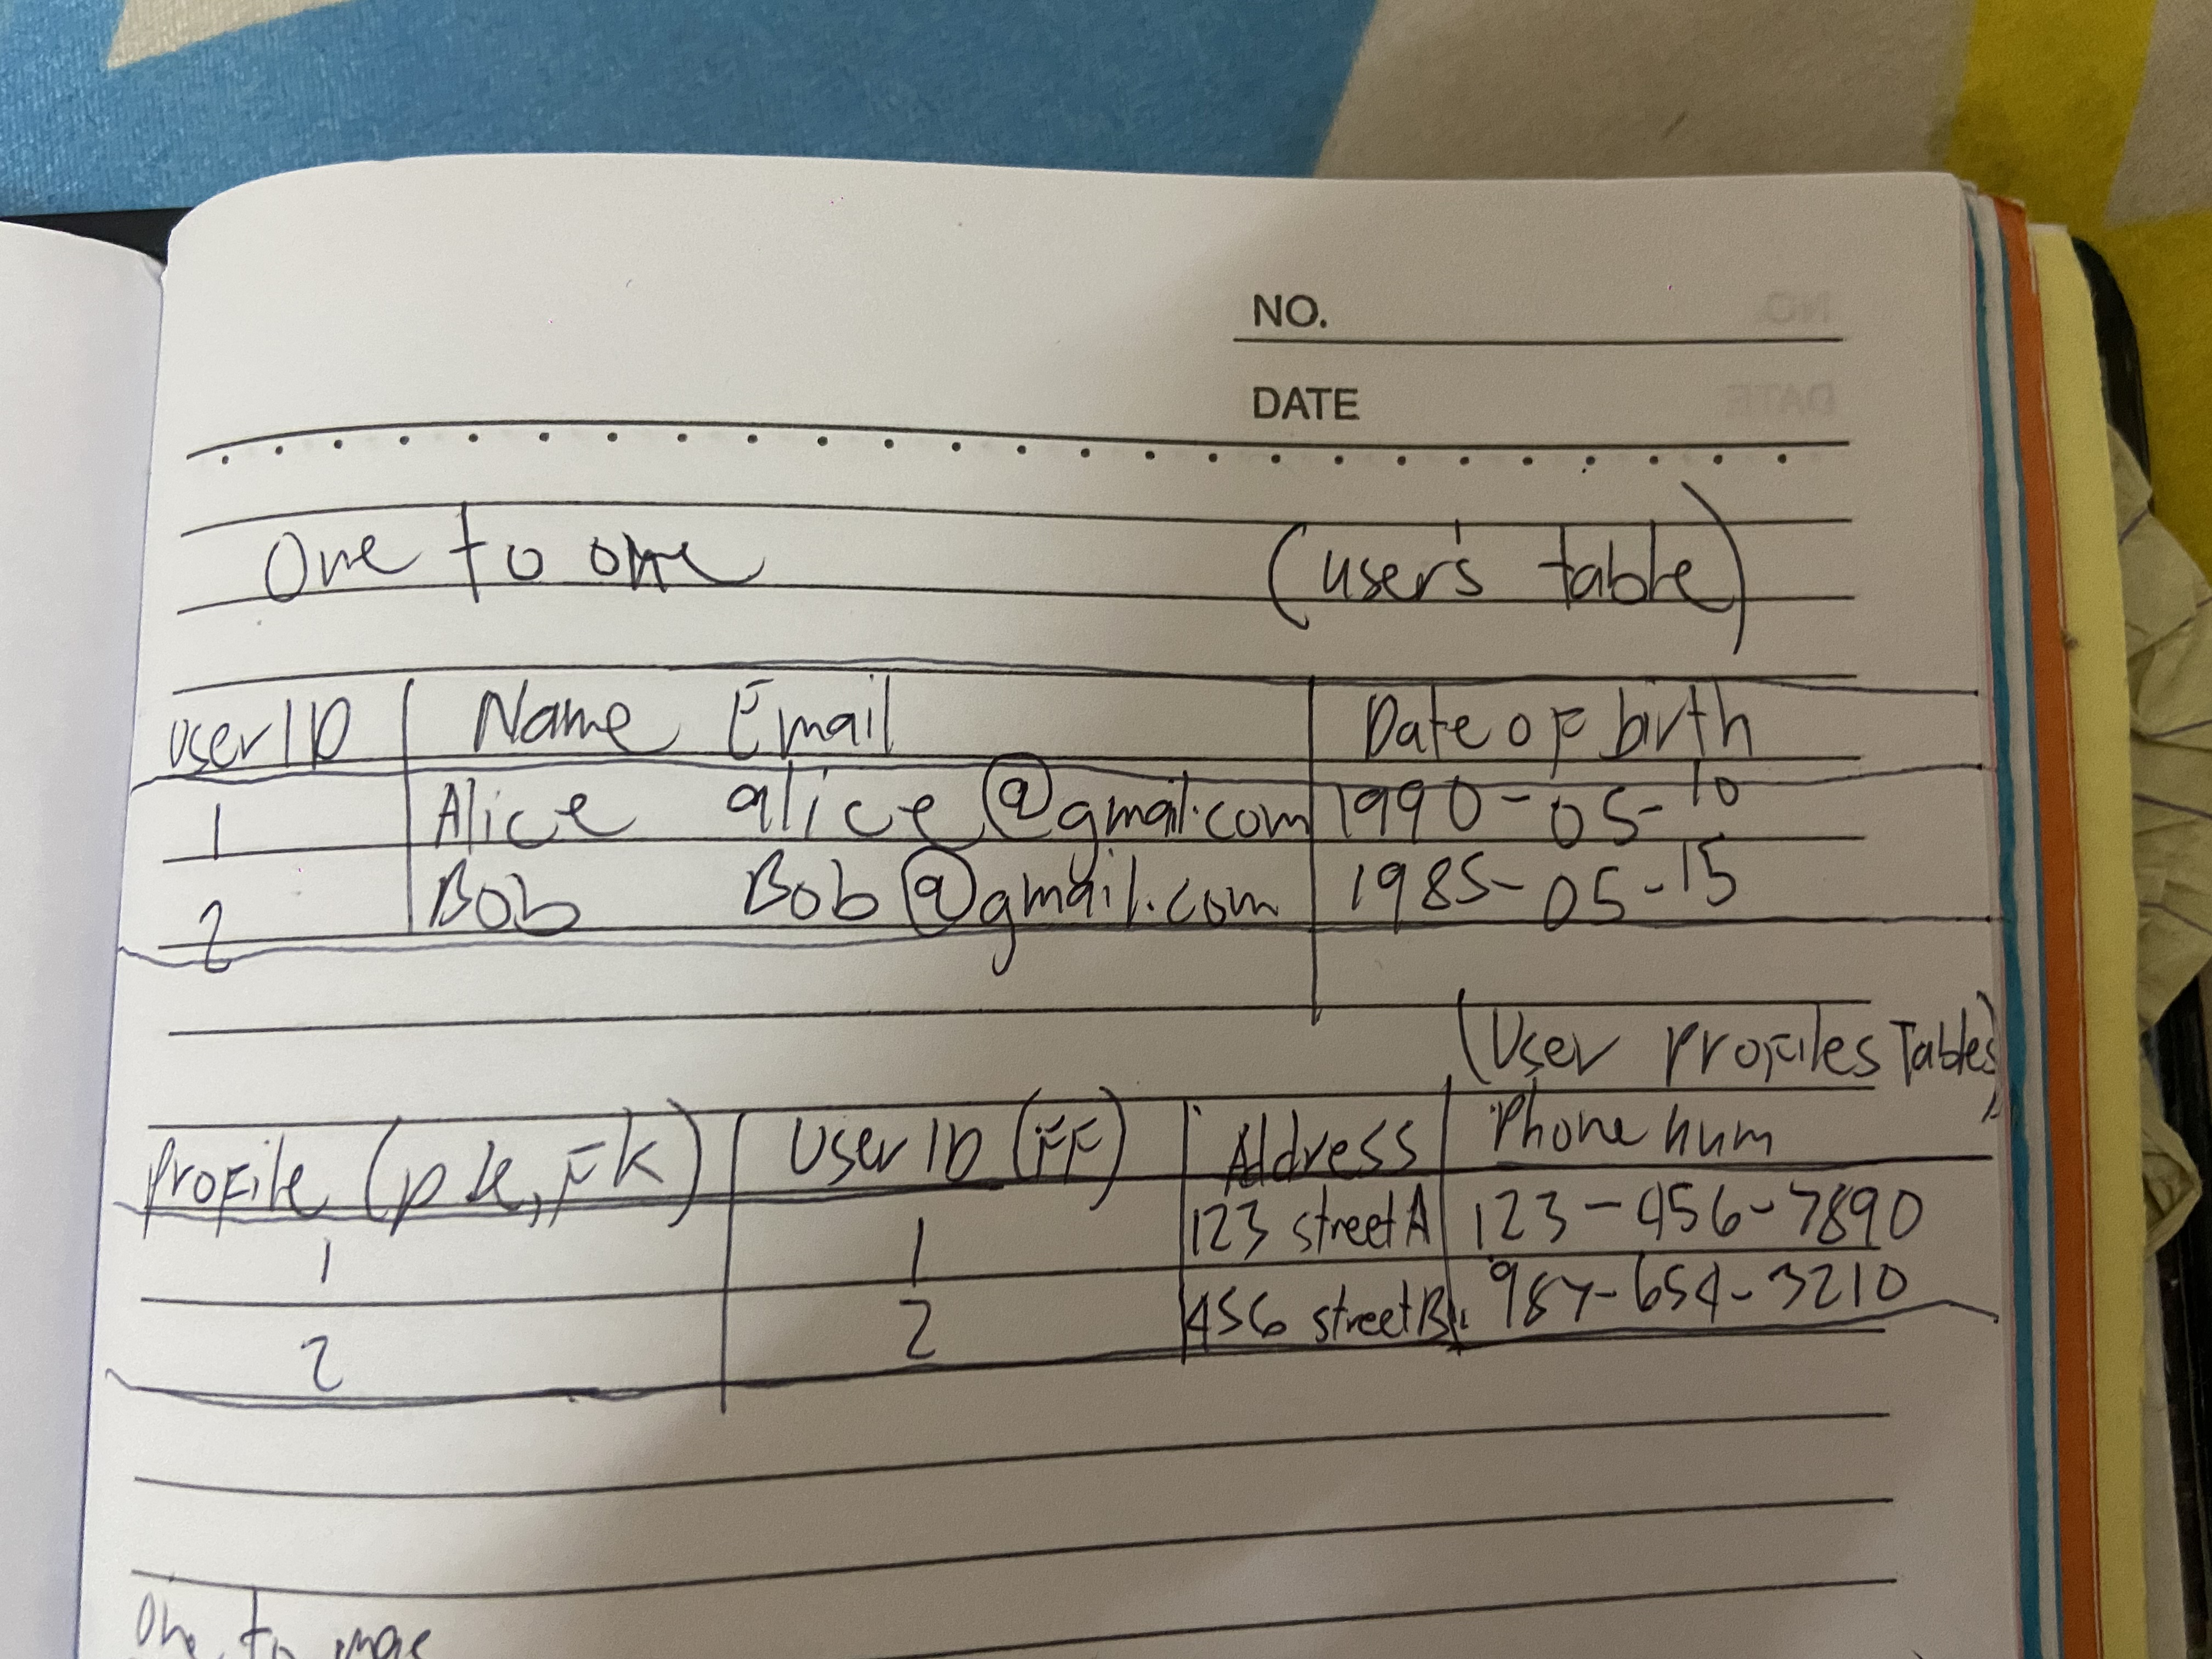 NO.
DATE
One to one (users table)
User ID Name Email Date of birth
1 Alice alice@gmail.com 1990-05-10
2 Bob Bob@gmail.com 1985-05-15
(User profiles Tables)
Profile (pk, Fk) User ID (FK) Address Phone num
1 1 123 street A 123-456-7890
2 2 456 street B 987-654-3210